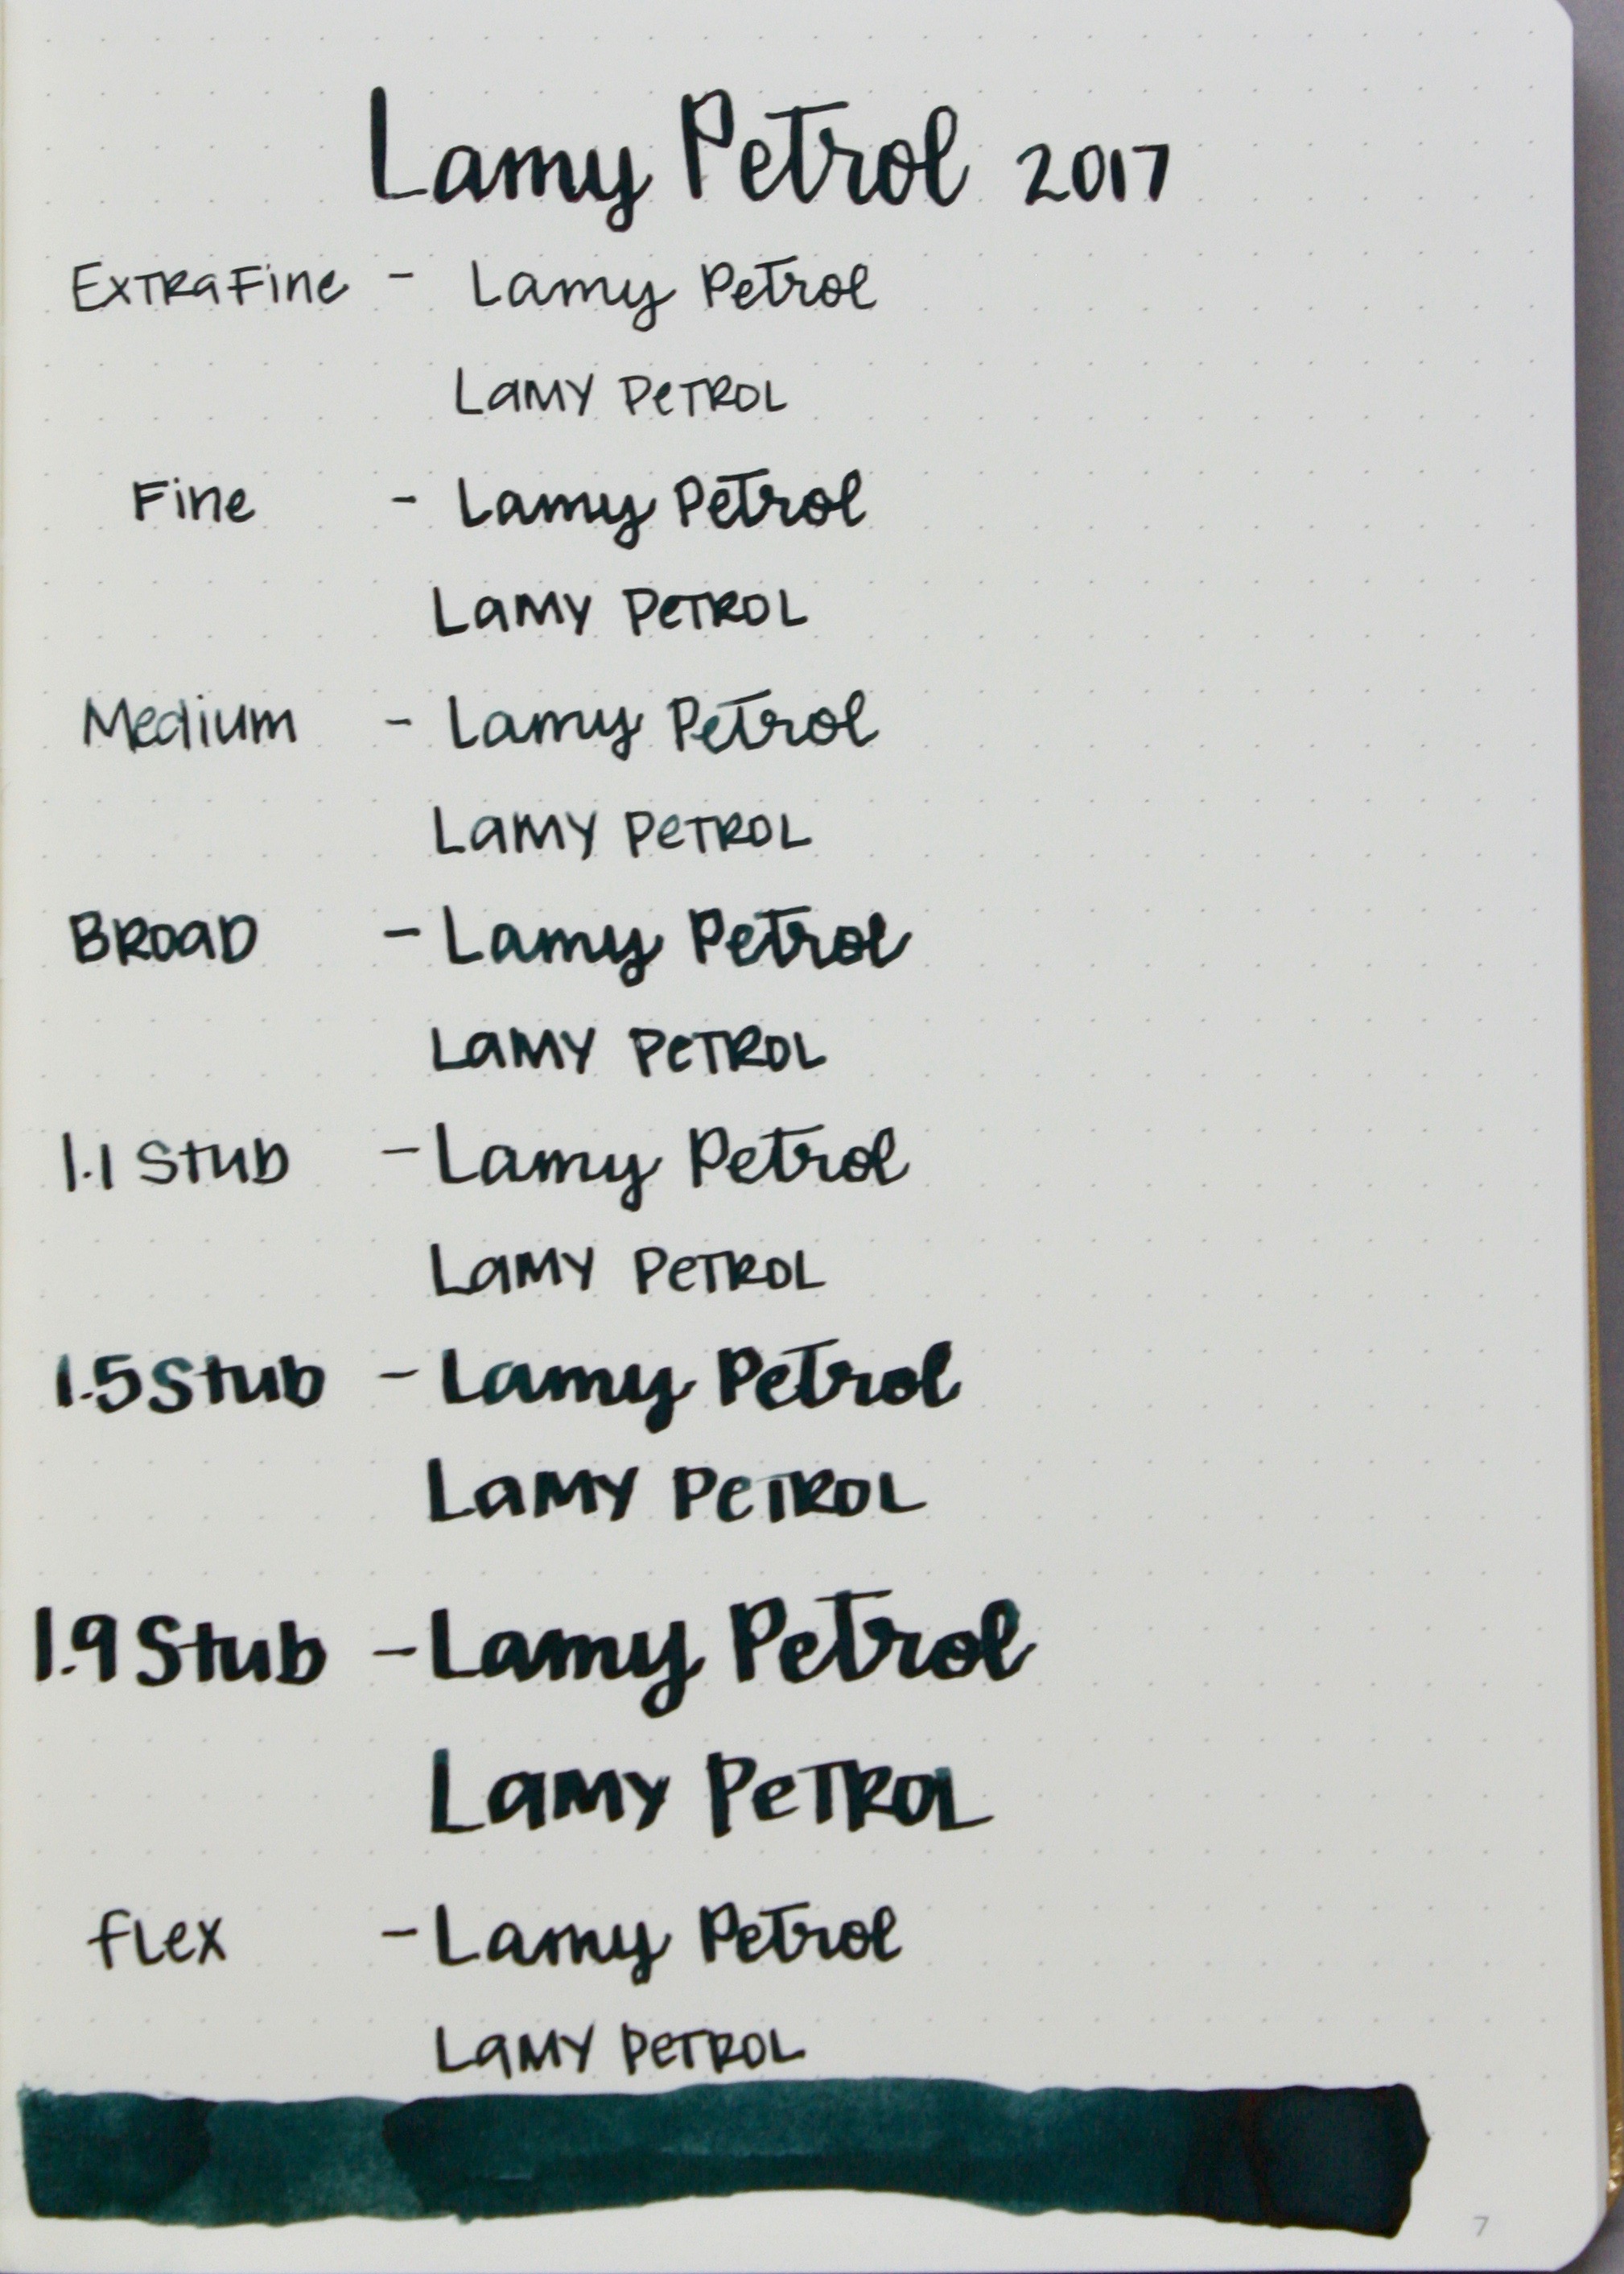 Lamy Petrol 2017
ExTRaFine - Lamy Petrol
LaMY PeTROL
Fine - Lamy Petrol
LaMY PeTROL
Medium - Lamy Petrol
LaMY PeTROL
BROaD - Lamy Petrol
LaMY PeTROL
1.1 Stub - Lamy Petrol
LaMY PeTROL
1.5 Stub - Lamy Petrol
LaMY PeTROL
1.9 Stub - Lamy Petrol
LaMY PeTROL
fLex - Lamy Petrol
LaMY PeTROL
7